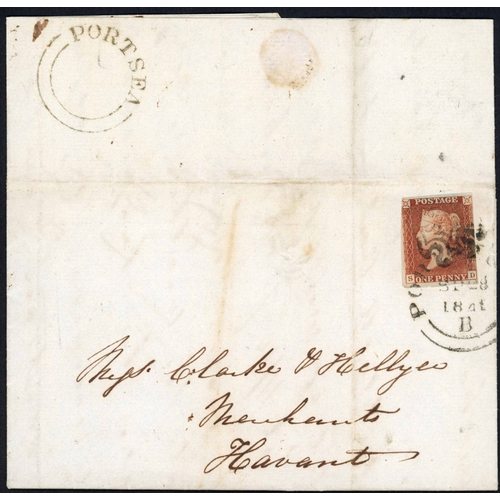 PORTSEA
POSTAGE
S ONE PENNY D
PO
1841
B
Messrs Clarke & Hellyer
Merchants
Havant